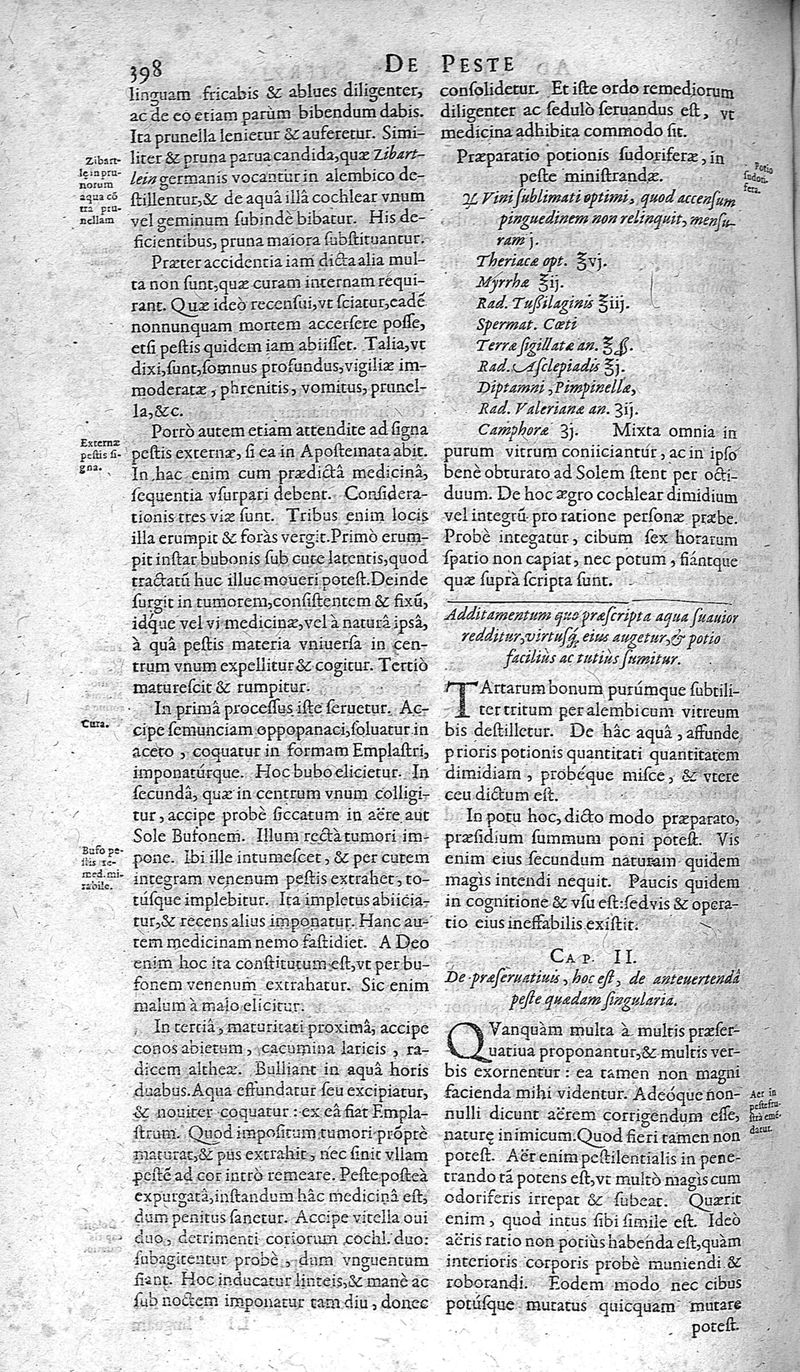 398
DE PESTE
linguam fricabis & ablues diligenter,
ac de eo etiam parùm bibendum dabis.
Ita prunella lenietur & auferetur. Simi-
liter & pruna parua candida, quæ Zibart-
lein germanis vocantur in alembico de-
ſtillentur, & de aquâ illâ cochlear vnum
vel geminum ſubindè bibatur. His de-
ficientibus, pruna maiora ſubſtituantur.
Zibart-
le in pru-
norum
aqua cō
tra pru-
nellam
Præter accidentia iam dicta alia mul-
ta non ſunt, quæ curam internam requi-
rant. Quæ ideò recenſui, vt ſciatur, eadē
nonnunquam mortem accerſere poſſe,
etſi peſtis quidem iam abiiſſet. Talia, vt
dixi, ſunt, ſomnus profundus, vigiliæ im-
moderatæ, phrenitis, vomitus, prunel-
la, &c.
Porrò autem etiam attendite ad ſigna
peſtis externæ, ſi ea in Apoſtemata abit.
In hac enim cum prædictâ medicinâ,
ſequentia vſurpari debent. Conſidera-
tionis tres viæ ſunt. Tribus enim locis
illa erumpit & foràs vergit. Primò erum-
pit inſtar bubonis ſub cute latentis, quod
tractatū huc illuc moueri poteſt. Deinde
ſurgit in tumorem, conſiſtentem & fixū,
idq́ue vel vi medicinæ, vel à naturâ ipsâ,
à quâ peſtis materia vniuerſa in cen-
trum vnum expellitur & cogitur. Tertiò
matureſcit & rumpitur.
Externæ
peſtis ſi-
gna.
In primâ proceſſus iſte ſeruetur. Ac-
cipe ſemunciam oppopanaci, ſoluatur in
aceto, coquatur in formam Emplaſtri,
imponatúrque. Hoc bubo elicietur. In
ſecundâ, quæ in centrum vnum colligi-
tur, accipe probè ſiccatum in aëre aut
Sole Bufonem. Illum rectà tumori im-
pone. Ibi ille intumeſcet, & per cutem
integram venenum peſtis extrahet, to-
túſque implebitur. Ita impletus abiicia-
tur, & recens alius imponatur. Hanc au-
tem medicinam nemo faſtidiet. A Deo
enim hoc ita conſtitutum eſt, vt per bu-
fonem venenum extrahatur. Sic enim
malum à malo elicitur.
Cura.
Bufo pe-
ſtis re-
med. mi-
rabile.
In tertiâ, maturitati proximâ, accipe
conos abietum, cacumina laricis, ra-
dicem altheæ. Bulliant in aquâ horis
duabus. Aqua effundatur ſeu excipiatur,
& nouiter coquatur: ex eâ fiat Empla-
ſtrum. Quod impoſitum tumori prōptè
maturat, & pus extrahit, nec ſinit vllam
peſtē ad cor intrò remeare. Peſte poſteà
expurgatâ, inſtandum hâc medicinâ eſt,
dum penitus ſanetur. Accipe vitella oui
duo, detrimenti coriorum cochl. duo:
ſubagitentur probè, dum vnguentum
fiant. Hoc inducatur linteis, & manè ac
ſub noctem imponatur tam diu, donec
conſolidetur. Et iſte ordo remediorum
diligenter ac ſedulò ſeruandus eſt, vt
medicina adhibita commodo ſit.
Præparatio potionis ſudoriferæ, in
peſte miniſtrandæ.
Potio
ſudori-
fera.
♃ Vini ſublimati optimi, quod accenſum
pinguedinem non relinquit, menſu-
ram j.
Theriacæ opt. ℥vj.
Myrrhæ ℥ij.
Rad. Tußilaginis ℥iij.
Spermat. Cœti
Terræ ſigillatæ an. ℥ß.
Rad. Aſclepiadis ℥j.
Diptamni, Pimpinellæ,
Rad. Valerianæ an. ʒij.
Camphoræ ʒj. Mixta omnia in
purum vitrum coniiciantur, ac in ipſo
benè obturato ad Solem ſtent per octi-
duum. De hoc ægro cochlear dimidium
vel integrū pro ratione perſonæ præbe.
Probè integatur, cibum ſex horarum
ſpatio non capiat, nec potum, fiántque
quæ ſuprà ſcripta ſunt.
Additamentum quo præſcripta aqua ſuauior
redditur, virtuſq́; eius augetur, & potio
faciliùs ac tutiùs ſumitur.
TArtarum bonum purúmque ſubtili-
ter tritum per alembicum vitreum
bis deſtilletur. De hâc aquâ, affunde
prioris potionis quantitati quantitatem
dimidiam, probéque miſce, & vtere
ceu dictum eſt.
In potu hoc, dicto modo præparato,
præſidium ſummum poni poteſt. Vis
enim eius ſecundum naturam quidem
magis intendi nequit. Paucis quidem
in cognitione & vſu eſt: ſed vis & opera-
tio eius ineffabilis exiſtit.
CAP. II.
De præſeruatiuis, hoc eſt, de anteuertendâ
peſte quædam ſingularia.
QVanquàm multa à multis præſer-
uatiua proponantur, & multis ver-
bis exornentur: ea tamen non magni
facienda mihi videntur. Adeóque non-
nulli dicunt aërem corrigendum eſſe,
naturę inimicum. Quod fieri tamen non
poteſt. Aër enim peſtilentialis in pene-
trando tā potens eſt, vt multò magis cum
odoriferis irrepat & ſubeat. Quærit
enim, quod intus ſibi ſimile eſt. Ideò
aëris ratio non potiùs habenda eſt, quàm
interioris corporis probè muniendi &
roborandi. Eodem modo nec cibus
potúſque mutatus quicquam mutare
poteſt.
Aer in
peſte fru-
ſtrà emē-
datur.